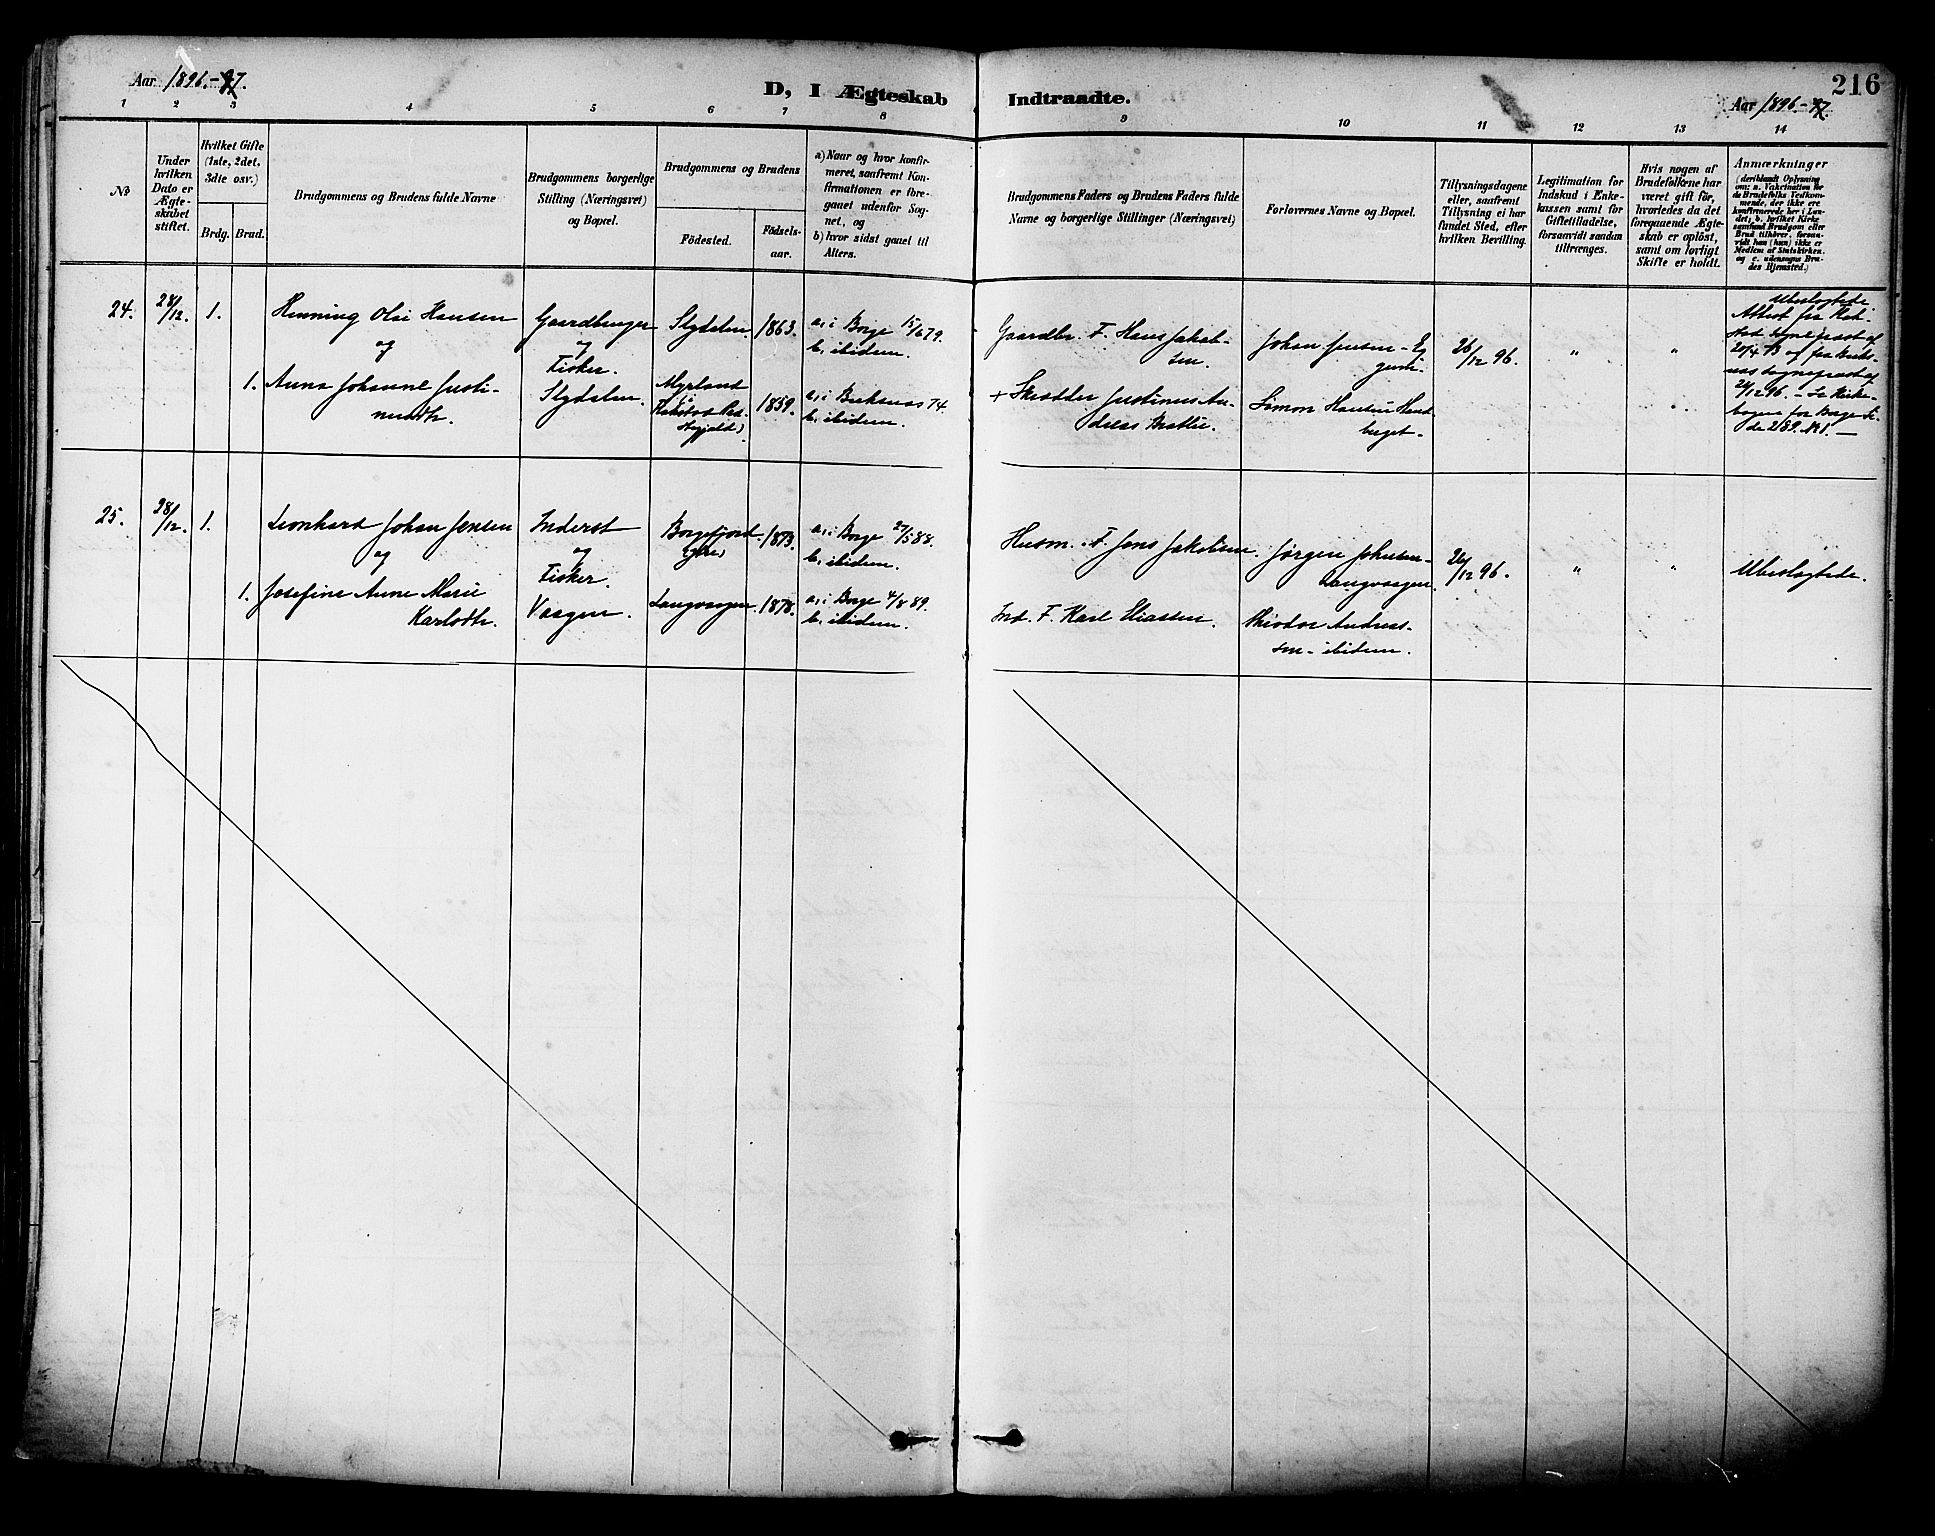 Aar 1896.-97.
D, I Ægteskab Indtraadte.
216
Aar 1896.-97.
1 2 3 4 5 6 7 8 9 10 11 12 13 14
No
Under hvilken Dato er Ægteskabet stiftet.
Hvilket Gifte (1ste, 2det, 3die osv.)
Brdg. Brud.
Brudgommens og Brudens fulde Navne
Brudgommens borgerlige Stilling (Næringsvei) og Bopæl.
Brudgommens og Brudens
Födested.
Födselsaar.
a) Naar og hvor konfirmeret, saafremt Konfirmationen er foregaaet udenfor Sognet, og
b) hvor sidst gaaet til Alters.
Brudgommens Faders og Brudens Faders fulde Navne og borgerlige Stillinger (Næringsvei)
Forlovernes Navne og Bopæl.
Tillysningsdagene eller, saafremt Tillysning ei har fundet Sted, efter hvilken Bevilling.
Legitimation for Indskud i Enkekassen samt for Giftetilladelse, forsaavidt saadan tiltrænges.
Hvis nogen af Brudefolkene har været gift för, hvorledes da det foregaaende Ægteskab er oplöst, samt om lovligt Skifte er holdt.
Anmærkninger
(deriblandt Oplysning om: a. Vakcination for de Brudefolks Vedkommende, der ikke ere konfirmerede her i Landet; b. hvilket Kirkesamfund Brudgom eller Brud tilhörer, forsaavidt han (hun) ikke er Medlem af Statskirken, og c. udensogns Brudes Hjemsted.)
24. 28/12. 1.
Henning Olai Hansen
og
1. Anna Johanne Justinusdtr.
Gaardbruger
og
Fisker.
Slydalen.
Slydalen. 1863.
Myrland
1859.
a, i Borge 15/6 79.
b, ibidem.
a, i Buksnæs 74.
b, ibidem.
Gaardbr. F. Hans Jakobsen.
+ Skrædder Justinus Andreas
Johan Jensen -
Simon Hansen
26/12 96.
" "
Ubeslægtede
Attest fra
sogneprest af
24/12 96. - Se Kirkebogen for Borge Side 289. No 1. —
25. 28/12. 1.
Leonhard Johan Jensen
og
1. Josefine Anne Marie
Karlsdtr.
Inderst
og
Fisker.
Vaagen.
Borgefjord 1873.
Langvaagen. 1878.
a, i Borge 27/5 88.
b, ibidem.
a, i Borge 4/8 89.
b, ibidem.
Husm. F. Jens Jakobsen.
Ind. F. Karl Eliassen.
Jørgen Johnsen -
Langvaagen.
Theodor Andreassen - ibidem.
26/12 96.
" "
Ubeslægtede.